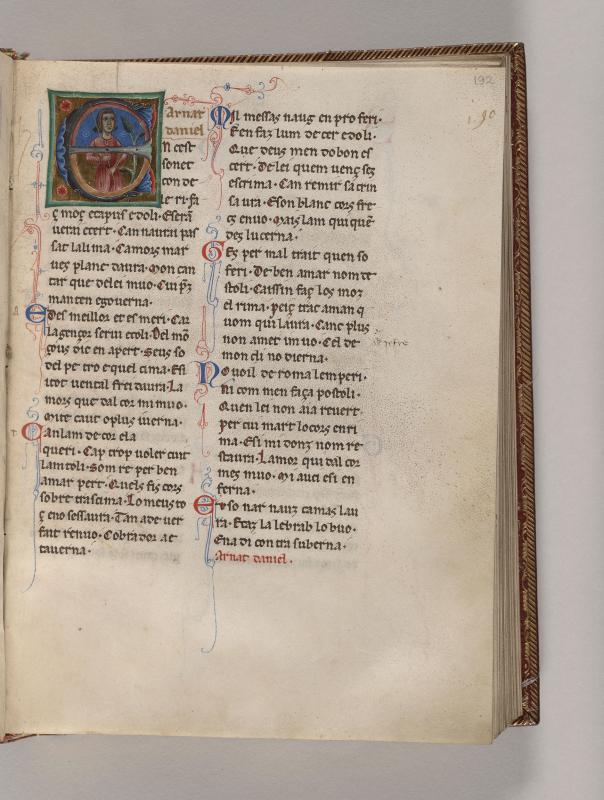 192
190
Arnat
daniel
En cest
sonet
con de
le ri. fa
ç moç e capus e doli. E serā
uerai e cert. Can naurai pas
sat la lima. Camors mar
ues plane daura. Mon can
tar que de lei muo. Cui pʒ
manten e gouerna.
Edes meillor et es meri. Car
la gençor serui e coli. Del mō
ços dic en apert. Seus so
del pe tro e quel cima. E si
tot uental freidaura. La
mors que dal cor mi muo.
Mite caut o plus iuerna.
Tan lam de cor e la
queri. Cap trop uoler cuit
lam toli. Som re per ben
amar pert. Quels fis cors
sobre trascima. Lo meus to
ç e no sessaura. Tan a de uer
fait renuo. Cobrador a e
tauerna.
Mil messas naug en proferi.
E en faz lum de cer e doli.
Que deus men do bon es
cert. De lei quem uenç ses
escrima. Can remir sa crin
saura. E son blanc cors fre
cs e nuo. Mais lam qui quē
des lucerna.
Ges per mal trait quen so
feri. De ben amar nom de
stoli. Caissin faç los moz
el rima. peiç trac aman q
uom qui laura. Canc plus
non amet im uo. Cel de
mon cli no dierna.
No uoil de roma lemperi.
Ni com men faça postoli.
Quen lei non aia reuert
per cui mart lo cors en ri
ma. E si mi donz nom re
staura. Lamor qui dal cor
mes muo. Mi auci e si en
ferna.
Eu so nar nauz camas lau
ra. E caz la lebrab lo buo.
E na di contra suberna.
Arnat daniel.